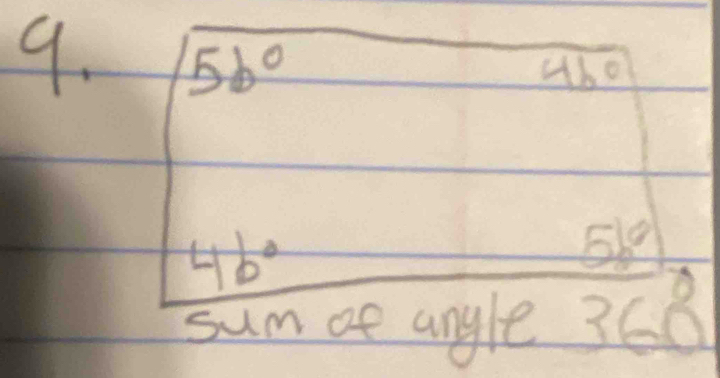 9.
5b° 4b°
4b° 5b°
sum of angle 360°